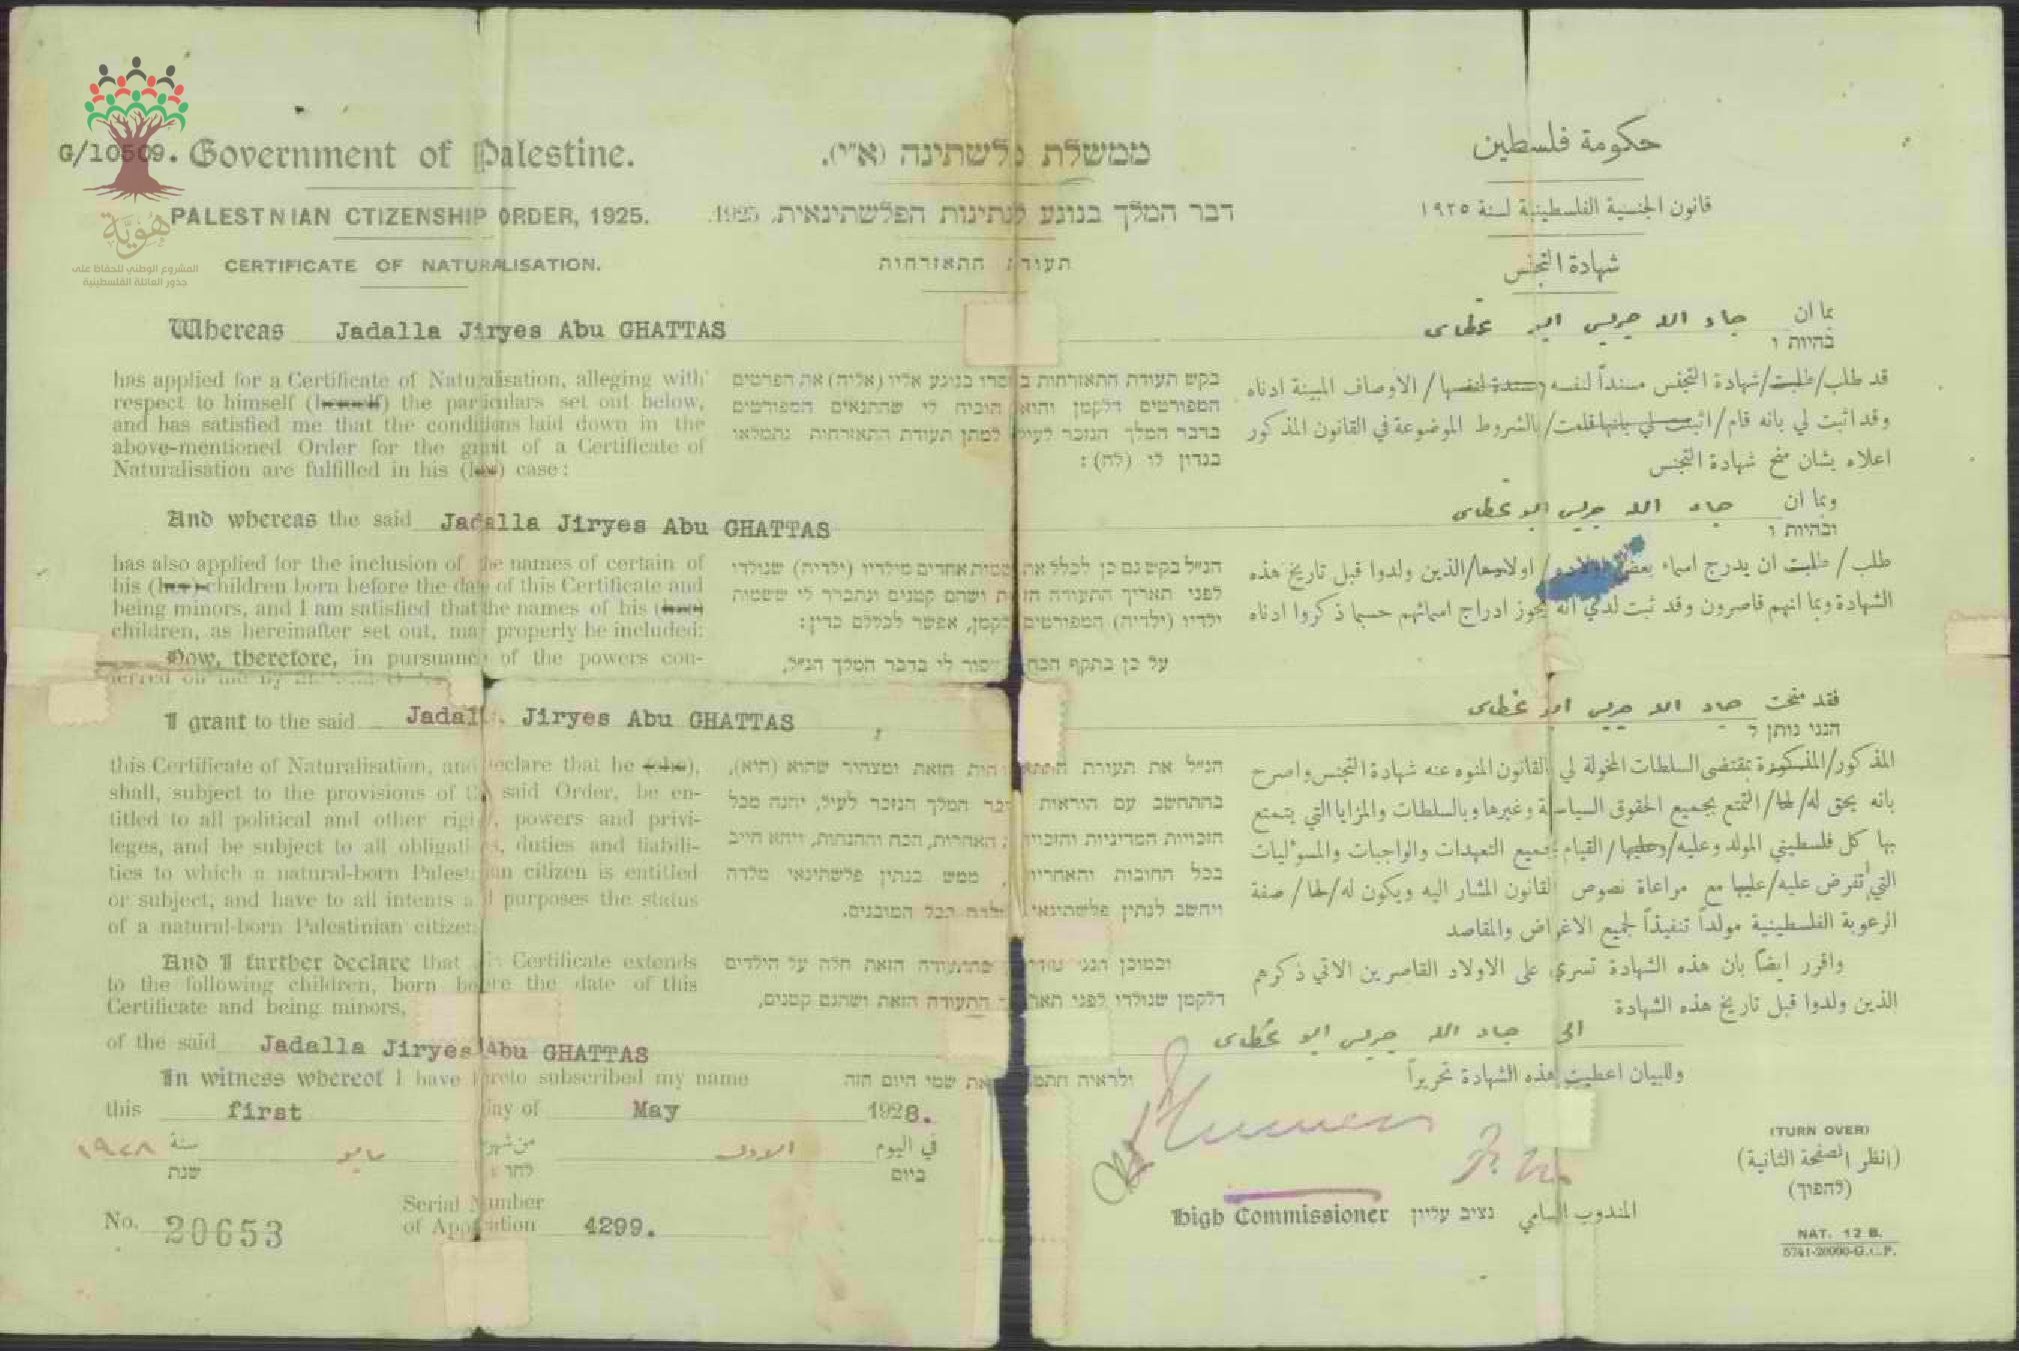 G/10509. Government of Palestine.
PALESTNIAN CTIZENSHIP ORDER, 1925.
CERTIFICATE OF NATURALISATION.
هوية
المشروع الوطني للحفاظ على
جذور العائلة الفلسطينية
ממשלת פלשתינה (א״י).
דבר המלך בנוגע לנתינות הפלשתינאית, 1925.
תעודת התאזרחות
حكومة فلسطين
قانون الجنسية الفلسطينية لسنة ١٩٢٥
شهادة التجنس
Whereas Jadalla Jiryes Abu GHATTAS
has applied for a Certificate of Naturalisation, alleging with
respect to himself (herself) the particulars set out below,
and has satisfied me that the conditions laid down in the
above-mentioned Order for the grant of a Certificate of
Naturalisation are fulfilled in his (her) case:
And whereas the said Jadalla Jiryes Abu GHATTAS
has also applied for the inclusion of the names of certain of
his (her) children born before the date of this Certificate and
being minors, and I am satisfied that the names of his (her)
children, as hereinafter set out, may properly be included:
Now, therefore, in pursuance of the powers con-
I grant to the said Jadalla Jiryes Abu GHATTAS,
this Certificate of Naturalisation, and declare that he (she),
shall, subject to the provisions of the said Order, be en-
titled to all political and other rights, powers and privi-
leges, and be subject to all obligations, duties and liabili-
ties to which a natural-born Palestinian citizen is entitled
or subject, and have to all intents and purposes the status
of a natural-born Palestinian citizen.
And I further declare that this Certificate extends
to the following children, born before the date of this
Certificate and being minors,
of the said Jadalla Jiryes Abu GHATTAS
In witness whereof I have hereto subscribed my name
this first day of May 1928.
في اليوم الاول من شهر مايو سنة ١٩٢٨
ביום לחדש שנת
No. 20653
Serial Number
of Application 4299.
בקש תעודת התאזרחות במסרו בנוגע אליו (אליה) את הפרטים
המפורטים דלקמן והוא הוכיח לי שהתנאים המפורטים
בדבר המלך הנזכר לעיל למתן תעודת התאזרחות נתמלאו
בנדון לו (לה):
הנ״ל בקש גם כן לכלל את שמות אחדים מילדיו (ילדיה) שנולדו
לפני תאריך התעודה הזאת ושהם קטנים ונתברר לי ששמות
ילדיו (ילדיה) המפורטים דלקמן, אפשר לכללם כדין:
על כן בתקף הכח המסור לי בדבר המלך הנ״ל,
הנ״ל את תעודת התאזרחות הזאת ומצהיר שהוא (היא),
בהתחשב עם הוראות דבר המלך הנזכר לעיל, יהנה מכל
הזכויות המדיניות והזכויות האחרות, הכח וההנחות, ויהא חייב
בכל החובות והאחריות, ממש כנתין פלשתינאי מלדה
ויחשב לנתין פלשתינאי מלדה לכל המובנים.
וכמוכן הנני מודיע שהתעודה הזאת חלה על הילדים
דלקמן שנולדו לפני תאריך התעודה הזאת ושהנם קטנים,
ולראיה חתמתי את שמי היום הזה
بما ان جاد الله جريس ابو غطاس
בהיות ו
قد طلب/طلبت/شهادة التجنس مسنداً لنفسه (مسندة لنفسها/الأوصاف المبينة ادناه
وقد اثبت لي بانه قام/اثبتت لي بانها قامت/بالشروط الموضوعة في القانون المذكور
اعلاه بشان منح شهادة التجنس
وبما ان جاد الله جريس ابو غطاس
ובהיות ו
طلب/طلبت ان يدرج اسماء بعض اولاده/اولادها/الذين ولدوا قبل تاريخ هذه
الشهادة وبما انهم قاصرون وقد ثبت لدي انه يجوز ادراج اسمائهم حسبما ذكروا ادناه
فقد منحت جاد الله جريس ابو غطاس
הנני נותן ל
المذكور/المذكورة بمقتضى السلطات المخولة لي بالقانون المنوه عنه شهادة التجنس واصرح
بانه يحق له/لها/التمتع بجميع الحقوق السياسية وغيرها وبالسلطات والمزايا التي يتمتع
بها كل فلسطيني المولد وعليه/وعليها/القيام بجميع التعهدات والواجبات والمسؤليات
التي تفرض عليه/عليها مع مراعاة نصوص القانون المشار اليه ويكون له/لها/صفة
الرعوية الفلسطينية مولداً تنفيذاً لجميع الاغراض والمقاصد
واقرر ايضاً بان هذه الشهادة تسري على الاولاد القاصرين الاتي ذكرهم
الذين ولدوا قبل تاريخ هذه الشهادة
الى جاد الله جريس ابو غطاس
وللبيان اعطيت هذه الشهادة تحريراً
High Commissioner נציב עליון المندوب السامي
(TURN OVER)
(انظر الصفحة الثانية)
(להפוך)
NAT. 12 B.
5741-20000-G.C.P.